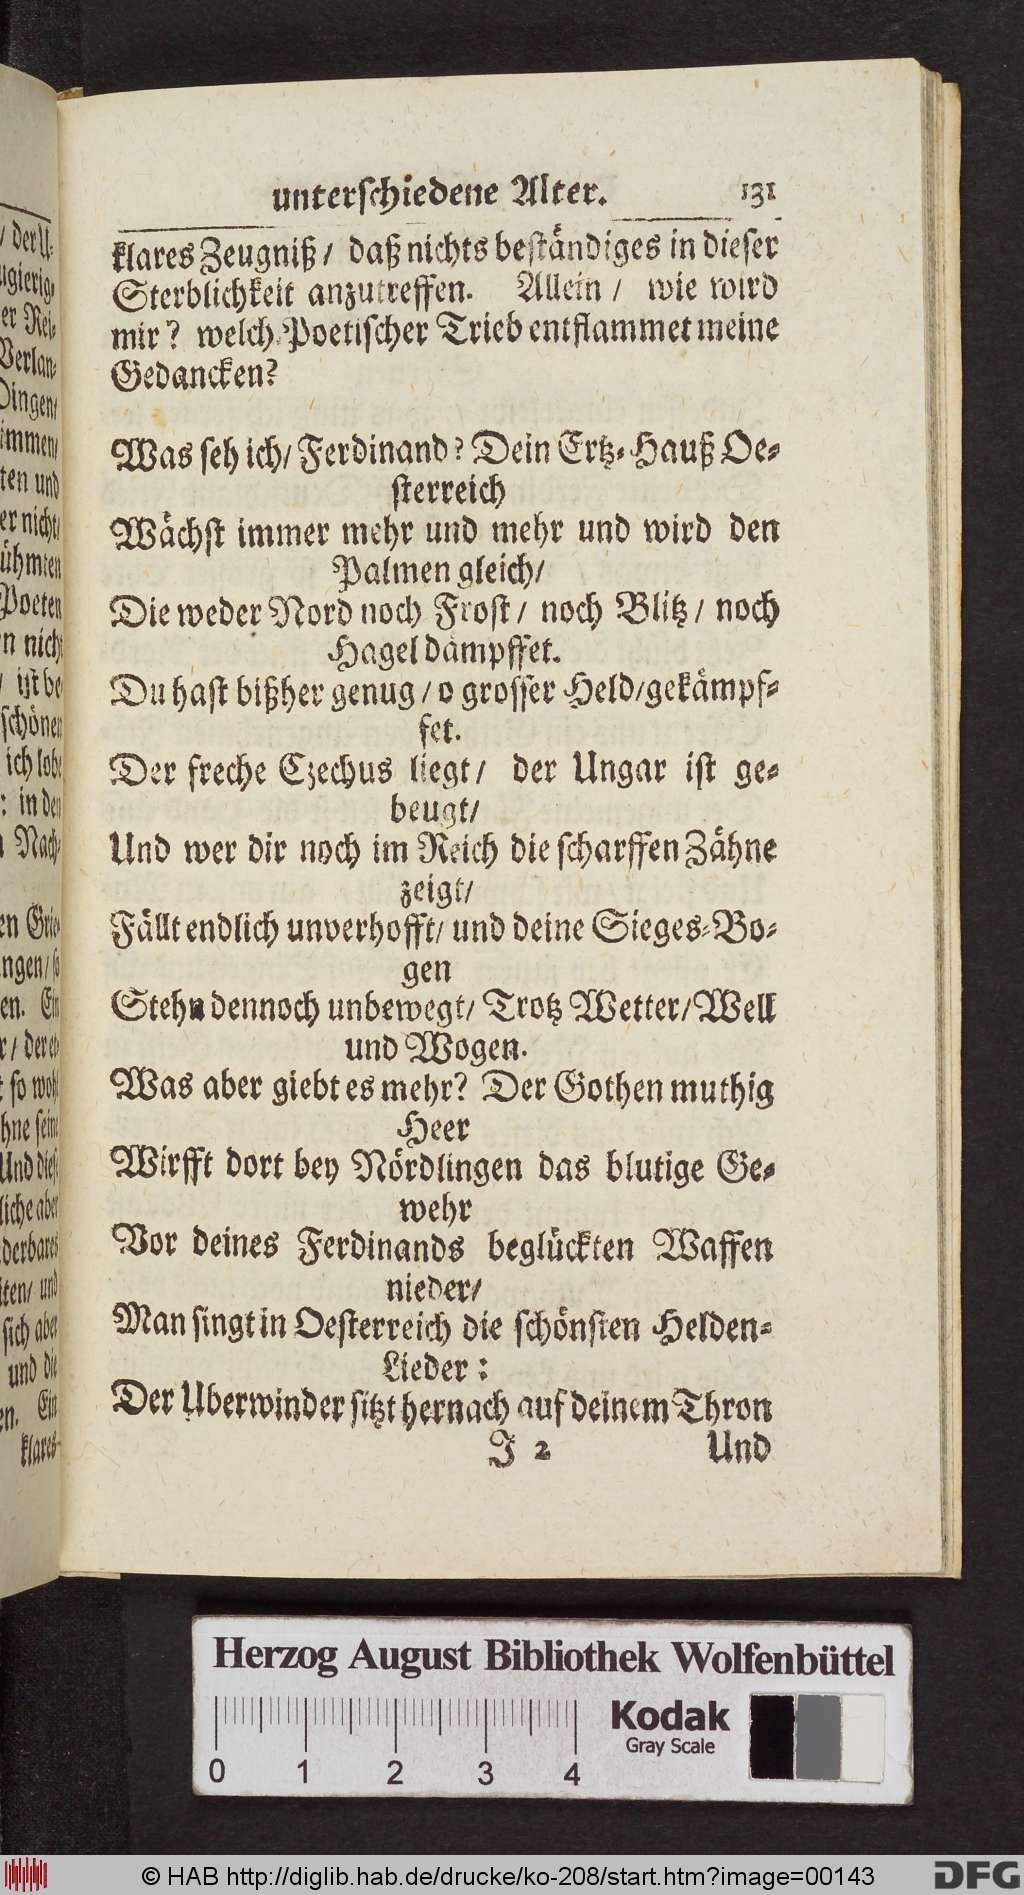 unterschiedene Alter. 131
klares Zeugniß / daß nichts beständiges in dieser
Sterblichkeit anzutreffen. Allein / wie wird
mir? welch Poetischer Trieb entflammet meine
Gedancken?
Was seh ich / Ferdinand? Dein Ertz-Hauß Oe-
sterreich
Wächst immer mehr und mehr und wird den
Palmen gleich /
Die weder Nord noch Frost / noch Blitz / noch
Hagel dämpffet.
Du hast bißher genug / o grosser Held / gekämpf-
fet.
Der freche Czechus liegt / der Ungar ist ge-
beugt /
Und wer dir noch im Reich die scharffen Zähne
zeigt /
Fällt endlich unverhofft / und deine Sieges-Bo-
gen
Stehn dennoch unbewegt / Trotz Wetter / Well
und Wogen.
Was aber giebt es mehr? Der Gothen muthig
Heer
Wirfft dort bey Nördlingen das blutige Ge-
wehr
Vor deines Ferdinands beglückten Waffen
nieder /
Man singt in Oesterreich die schönsten Helden-
Lieder:
Der Uberwinder sitzt hernach auf deinem Thron
J 2 Und
/ der U-
ugierig-
er Rei-
Verlan-
Dingen /
immen /
ten und
er nicht /
ühmten
Poeten
n nicht
/ ist be
schönen
ich lobe
: in den
Nach-
en Grie-
ngen / so
en. Ein
r / der
so wohl
hne seine
Und diese
liche aber
derbares
iten / und
sich aber
und die
en. Ein
klares
Herzog August Bibliothek Wolfenbüttel
0 1 2 3 4
Kodak
Gray Scale
© HAB http://diglib.hab.de/drucke/ko-208/start.htm?image=00143
DFG